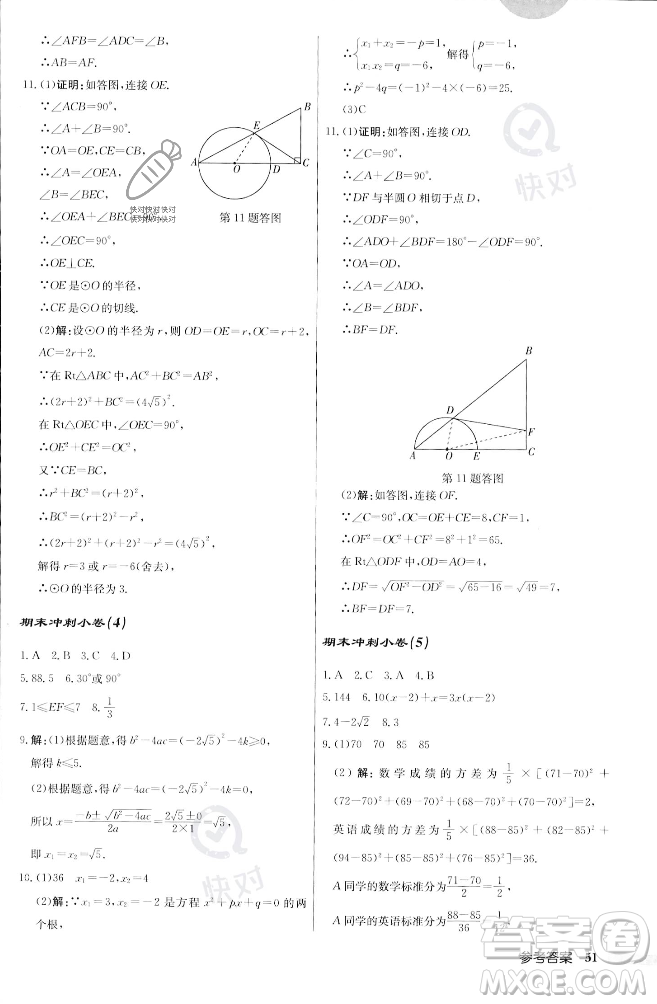 ∴∠AFB=∠ADC=∠ABD.
∴AB=AF.
11.(1)证明:如答图,连接OE.
∵∠ACB=90°,
∴∠A+∠B=90°.
∵OA=OE,CE=BC,
∴∠A=∠OEA,
∠B=∠BEC.
∴∠OEA+∠BEC=90°.
∴∠OEC=90°.
∴OE⊥CE.
∵OE是⊙O的半径,
∴CE是⊙O的切线.
A O D C E B
第11题答图
(2)解:设⊙O的半径为r,则OD=OE=r,OC=r+2,
AC=2r+2.
∵在Rt△ABC中,AC²+BC²=AB²,
∴(2r+2)²+BC²=(4√5)².
在Rt△OEC中,
OE²+CE²=OC²,
∴r²+CE²=(r+2)².
又∵CE=BC,
∴r²+BC²=(r+2)².
∴BC²=(r+2)²-r².
∴(2r+2)²+(r+2)²-r²=(4√5)².
解得r=3或r=-6(舍去).
∴⊙O的半径为3.
期末冲刺小卷(4)
1.A 2.B 3.C 4.D
5.88.5 6.30°或90°
7.1≤EF≤7 8.1/3
9.解:(1)根据题意,得b²-4ac=(2√5)²-4k>0,
解得k<5.
(2)根据题意,得b²-4ac=(2√5)²-4k=0,
所以x=(-b±√(b²-4ac))/2a=(2√5±0)/(2×1)=√5,
即x₁=x₂=√5.
10.(1)36 x₁=-2,x₂=4
(2)解:∵x₁,x₂是方程x²+px+q=0的两
个根,
∴{x₁+x₂=-p=1, x₁x₂=q=-6, 解得{p=-1, q=-6,
∴p²-4q=(-1)²-4×(-6)=25.
(3)C
11.(1)证明:如答图,连接OD.
∵∠C=90°,
∴∠A+∠B=90°.
∵DF与半圆O相切于点D,
∴∠ODF=90°.
∴∠ADO+∠BDF=180°-∠ODF=90°.
∵OA=OD,
∴∠A=∠ADO.
∴∠B=∠BDF.
∴BF=DF.
A O E C F D B
第11题答图
(2)解:如答图,连接OF.
∵∠C=90°,OC=OE+CE=8,CF=1,
∴OF²=OC²+CF²=8²+1²=65.
在Rt△ODF中,OD=AO=4,
∴DF=√(OF²-OD²)=√(65-16)=√49=7,
∴BF=DF=7.
期末冲刺小卷(5)
1.A 2.C 3.A 4.D
5.144 6.10(x-2)+x=3x(x-2)
7.4-2√2 8.3
9.(1)70 70 85 85
(2)解:数学成绩的方差为1/5×[(71-70)²+
(72-70)²+(69-70)²+(68-70)²+(70-70)²]=2,
英语成绩的方差为1/5×[(88-85)²+(82-85)²+
(94-85)²+(85-85)²+(76-85)²]=36.
A同学的数学标准分为(71-70)/2=1/2,
A同学的英语标准分为(88-85)/36=1/12.
参考答案 51
快对
快对
快对
快对快对 快对
快对快对 快对
答案圈
MXQE.COM